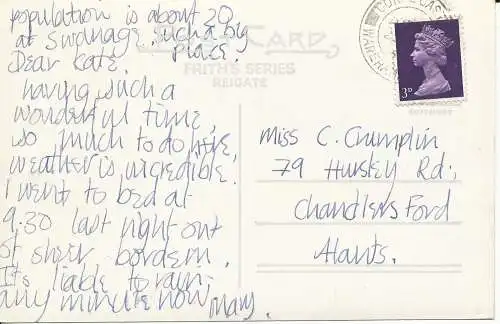 population is about 20
at Swanage. such a big
place.
CARD
FRITH'S SERIES
REIGATE
Dear Kate.
having such a
wonderful time,
so much to do here,
weather is incredible.
I went to bed at
9.30 last night out
of sheer bordem.
It's liable to rain
any minute now
Mary.
3D
Miss C. Crumplin
79 Hursley Rd;
Chandlers Ford
Hants.